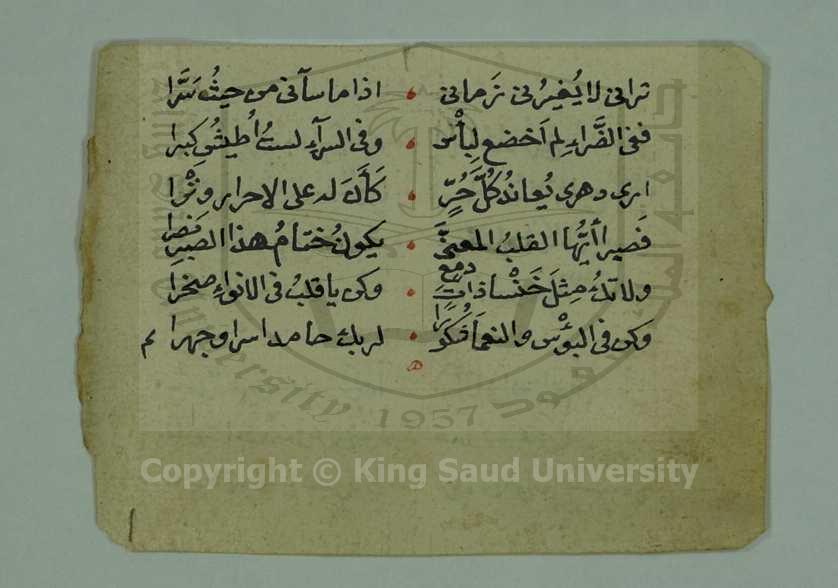 ترانى لا يُغيرُنى زمانى • اذا ما سآنى من حيثُ سَرَّا
ففى الضَّراءِ لم اَخضع لِبأْس • وفى السرآءِ لستُ اُطيشُ كِبرا
ارى دهرى يُعاندُ كُلَّ حُرٍّ • كَأَنَ له على الاحرار وِتْرا
فَصبراً أيُّها القلبُ المعنىَّ • يكونُ ختامُ هذا الصبرِ نصرا
ولا تكُ مِثلَ خَنْسا ذاتِ دمعٍ • وكن يا قلبُ فى الانواءِ صخرا
وكن فى البؤْسِ والنعمآ شكورًا • لربك حامدا سرا وجهرا م
جامعة الملك سعود
University 1957
Copyright © King Saud University